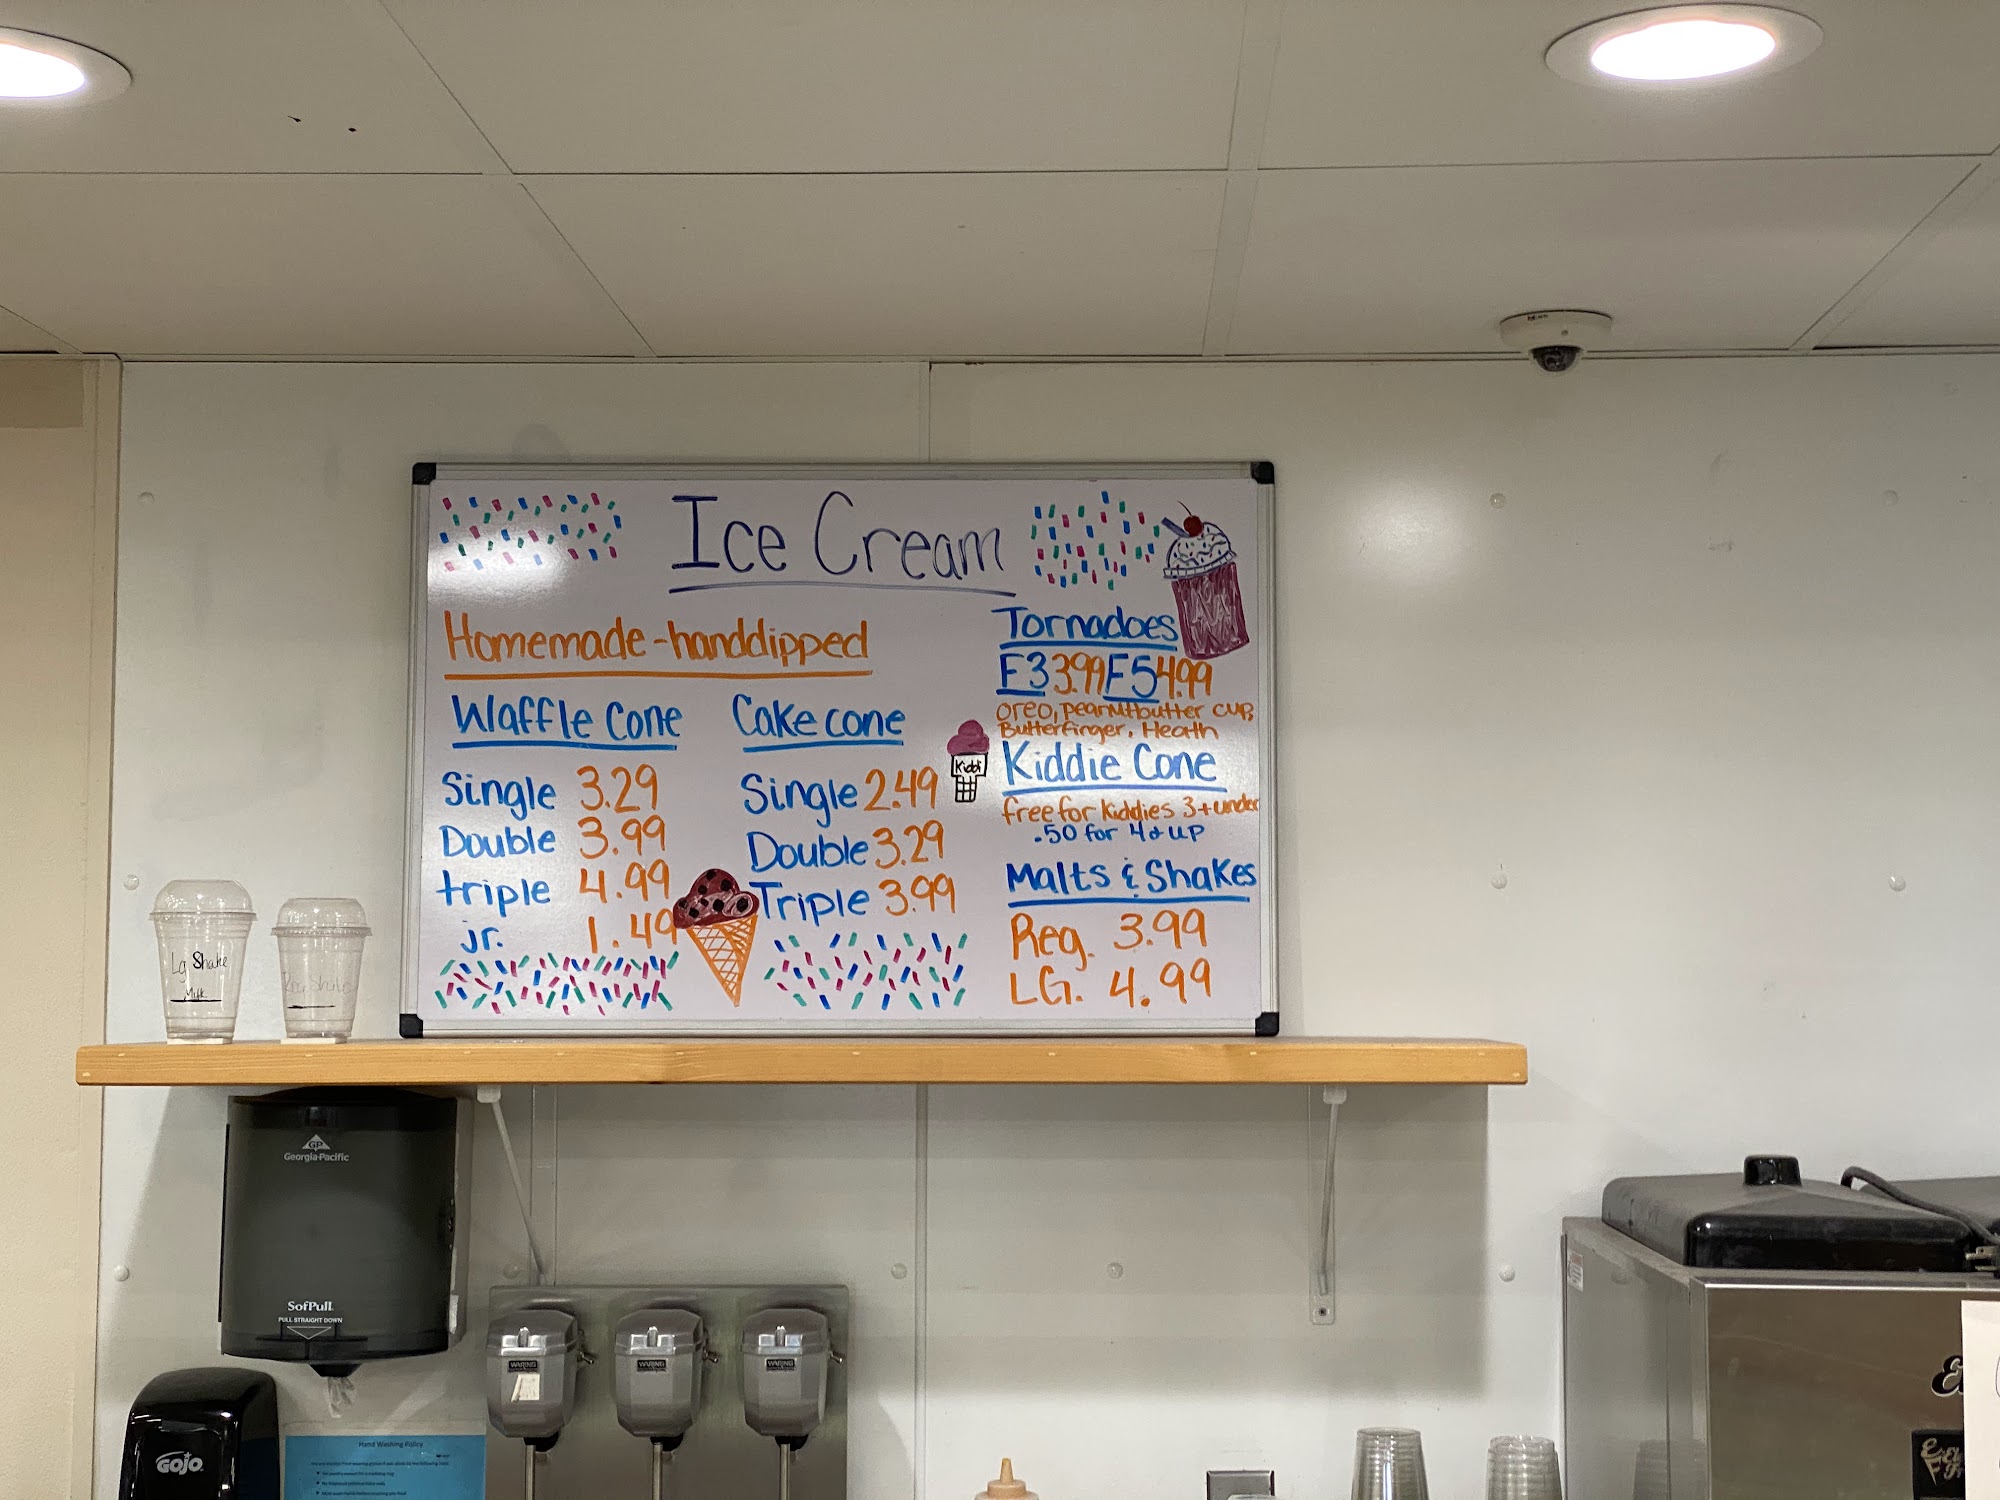 Ice Cream
Homemade-handdipped
Waffle Cone
Single 3.29
Double 3.99
triple 4.99
jr. 1.49
Cake cone
Single 2.49
Double 3.29
Triple 3.99
Tornadoes
F3 3.99 F5 4.99
oreo, peanutbutter cup,
Butterfinger, Heath
Kiddi
Kiddie Cone
free for kiddies 3+under
.50 for 4 & up
Malts & Shakes
Reg. 3.99
LG. 4.99
Lg Shake
Milk
GP
Georgia-Pacific
SofPull
PULL STRAIGHT DOWN
WARING
WARING
WARING
GOJO
Hand Washing Policy